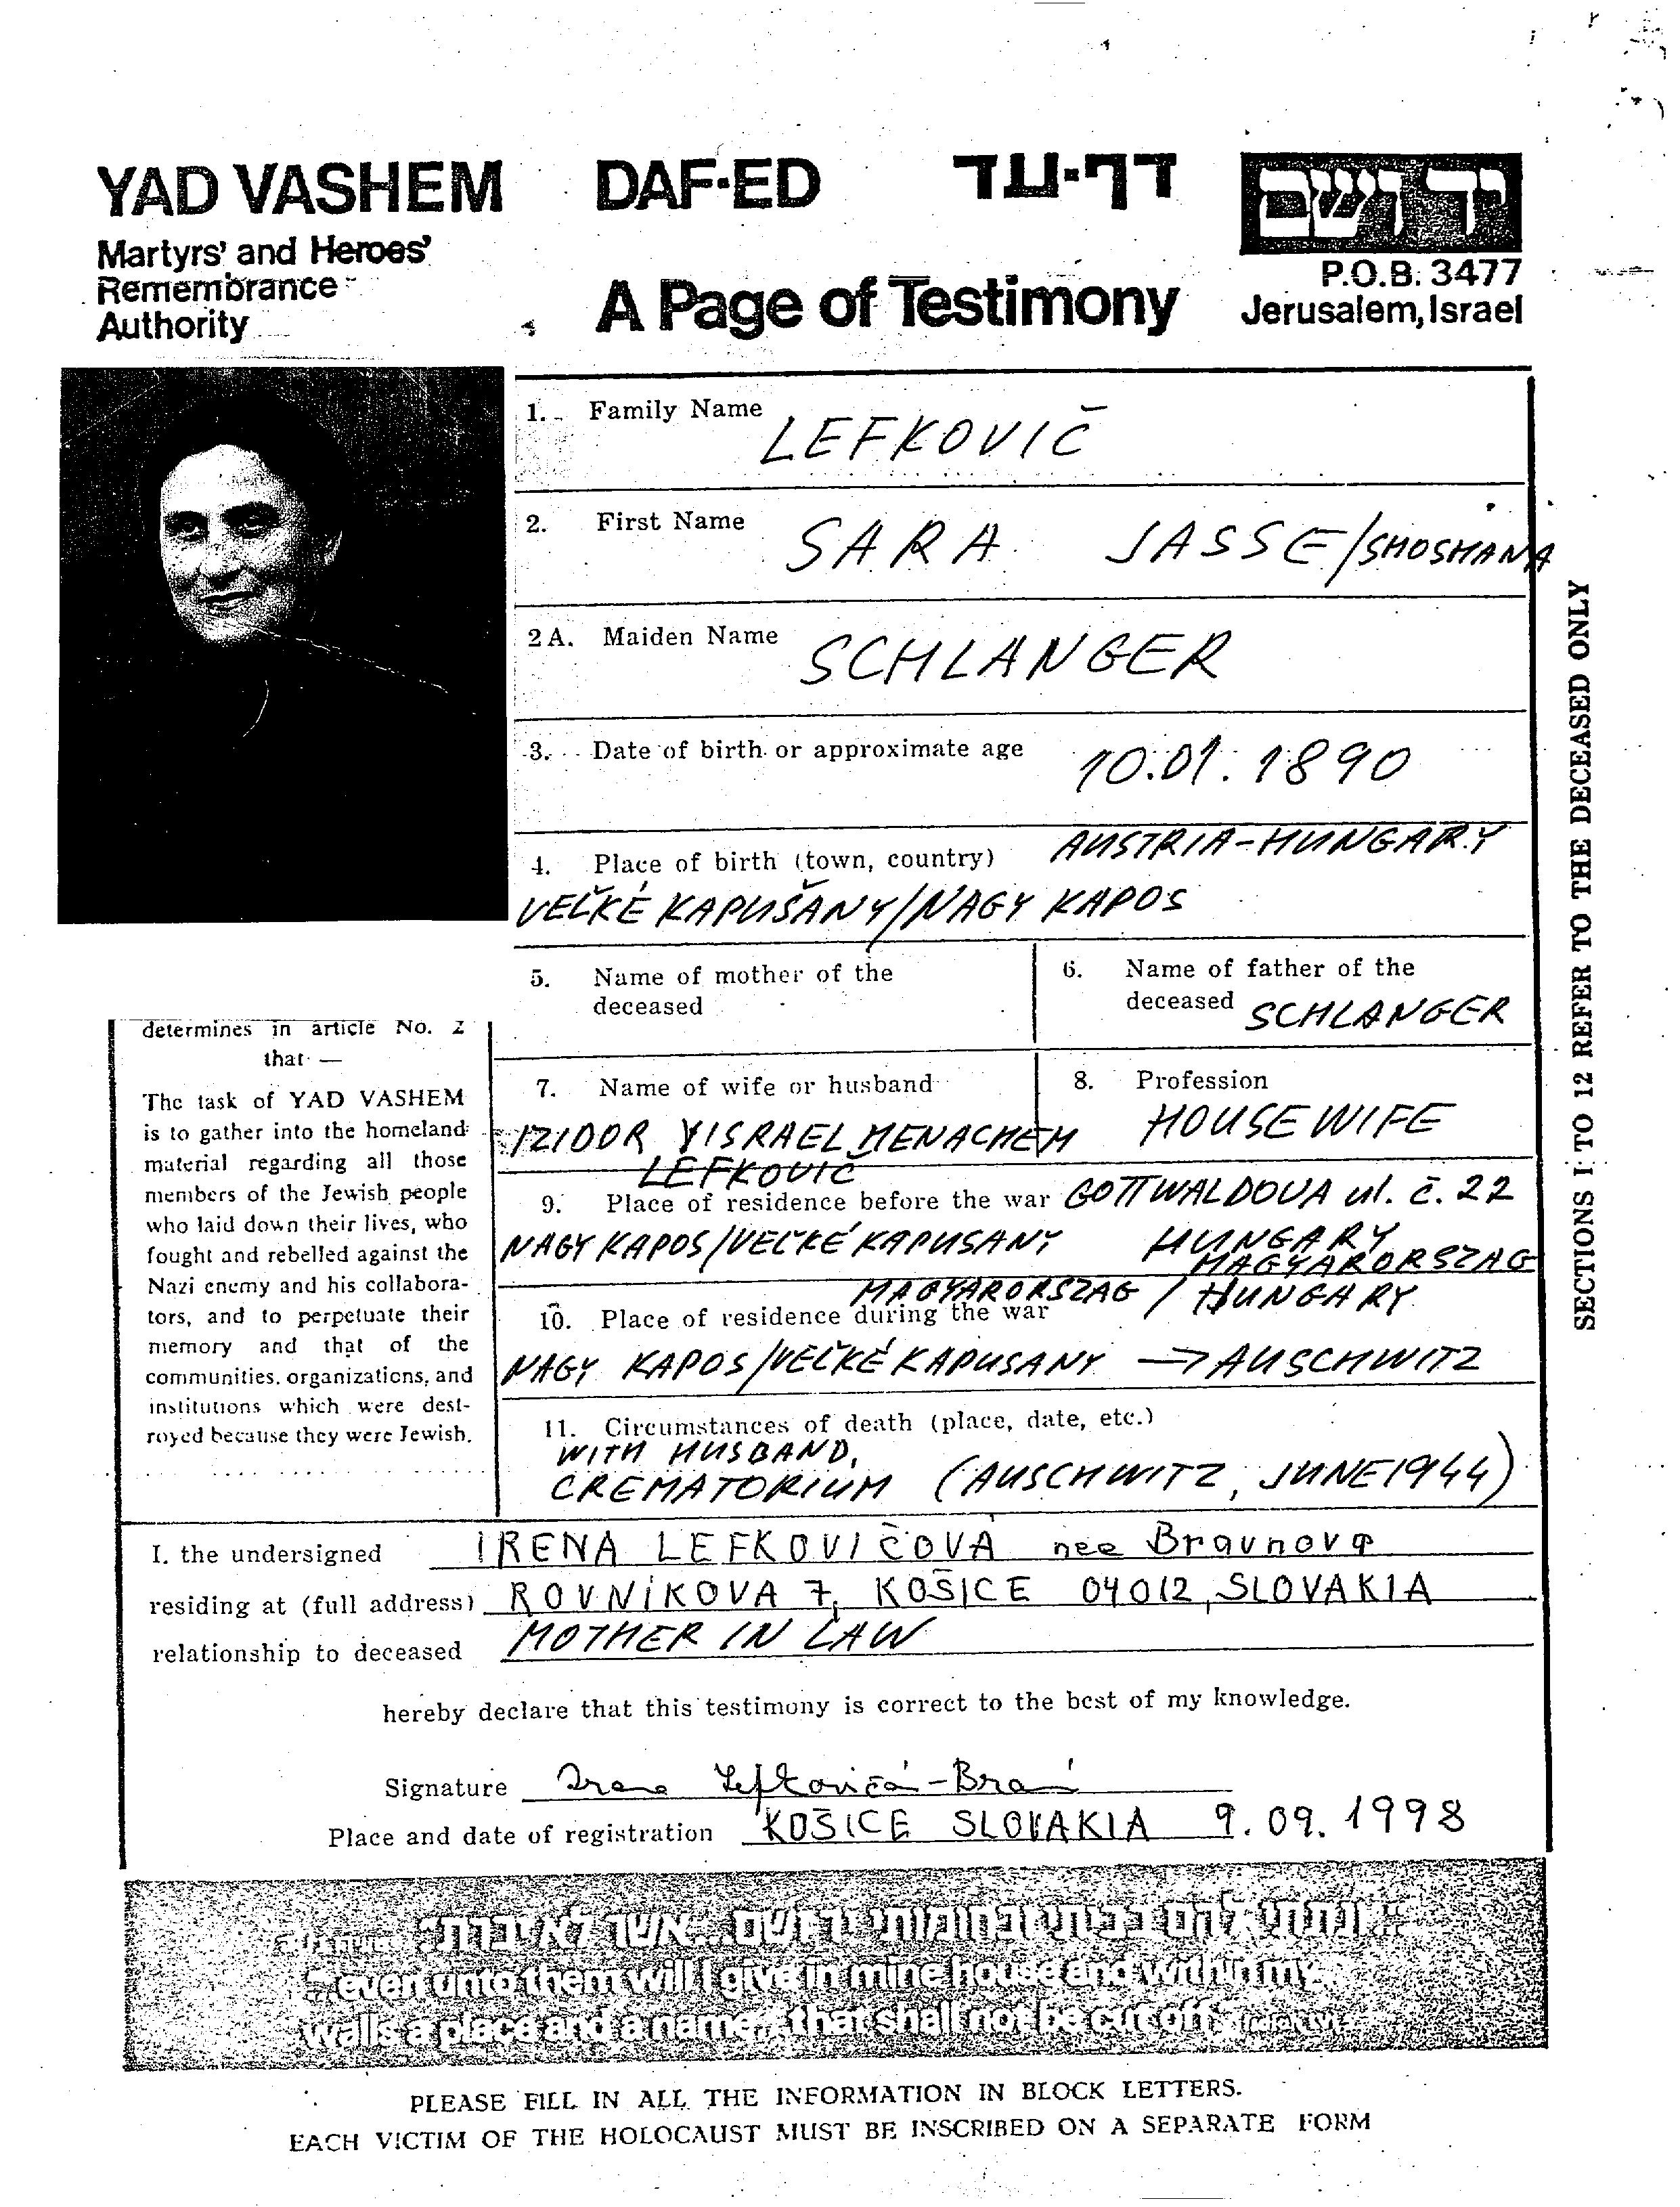 YAD VASHEM DAF-ED דף-עד יד ושם
Martyrs' and Heroes'
Remembrance
Authority
A Page of Testimony
P.O.B. 3477
Jerusalem, Israel
1. Family Name LEFKOVIČ
2. First Name SARA JASSE/SHOSHANA
2A. Maiden Name SCHLANGER
3. Date of birth or approximate age 10.01.1890
4. Place of birth (town, country) AUSTRIA-HUNGARY
VEĽKÉ KAPUŠANY/NAGY KAPOS
5. Name of mother of the
deceased
6. Name of father of the
deceased SCHLANGER
determines in article No. 2
that —
The task of YAD VASHEM
is to gather into the homeland
material regarding all those
members of the Jewish people
who laid down their lives, who
fought and rebelled against the
Nazi enemy and his collabora-
tors, and to perpetuate their
memory and that of the
communities, organizations, and
institutions which were dest-
royed because they were Jewish.
7. Name of wife or husband
IZIDOR YISRAEL MENACHEM
LEFKOVIČ
8. Profession
HOUSEWIFE
9. Place of residence before the war GOTTWALDOVA ul. č. 22
NAGY KAPOS/VEĽKÉ KAPUSANY HUNGARY
MAGYARORSZAG
MAGYARORSZAG / HUNGARY
10. Place of residence during the war
NAGY KAPOS/VEĽKÉ KAPUSANY → AUSCHWITZ
11. Circumstances of death (place, date, etc.)
WITH HUSBAND,
CREMATORIUM (AUSCHWITZ, JUNE 1944)
SECTIONS 1 TO 12 REFER TO THE DECEASED ONLY
I, the undersigned IRENA LEFKOVIČOVA nee Braunova
residing at (full address) ROVNÍKOVA 7, KOŠICE 04012, SLOVAKIA
relationship to deceased MOTHER IN LAW
hereby declare that this testimony is correct to the best of my knowledge.
Signature Irena Lefkovičá-Bra
Place and date of registration KOŠICE SLOVAKIA 9.09.1998
...ונתתי להם בביתי ובחומותי יד ושם...אשר לא יכרת:
...even unto them will I give in mine house and within my
walls a place and a name...that shall not be cut off.
PLEASE FILL IN ALL THE INFORMATION IN BLOCK LETTERS.
EACH VICTIM OF THE HOLOCAUST MUST BE INSCRIBED ON A SEPARATE FORM